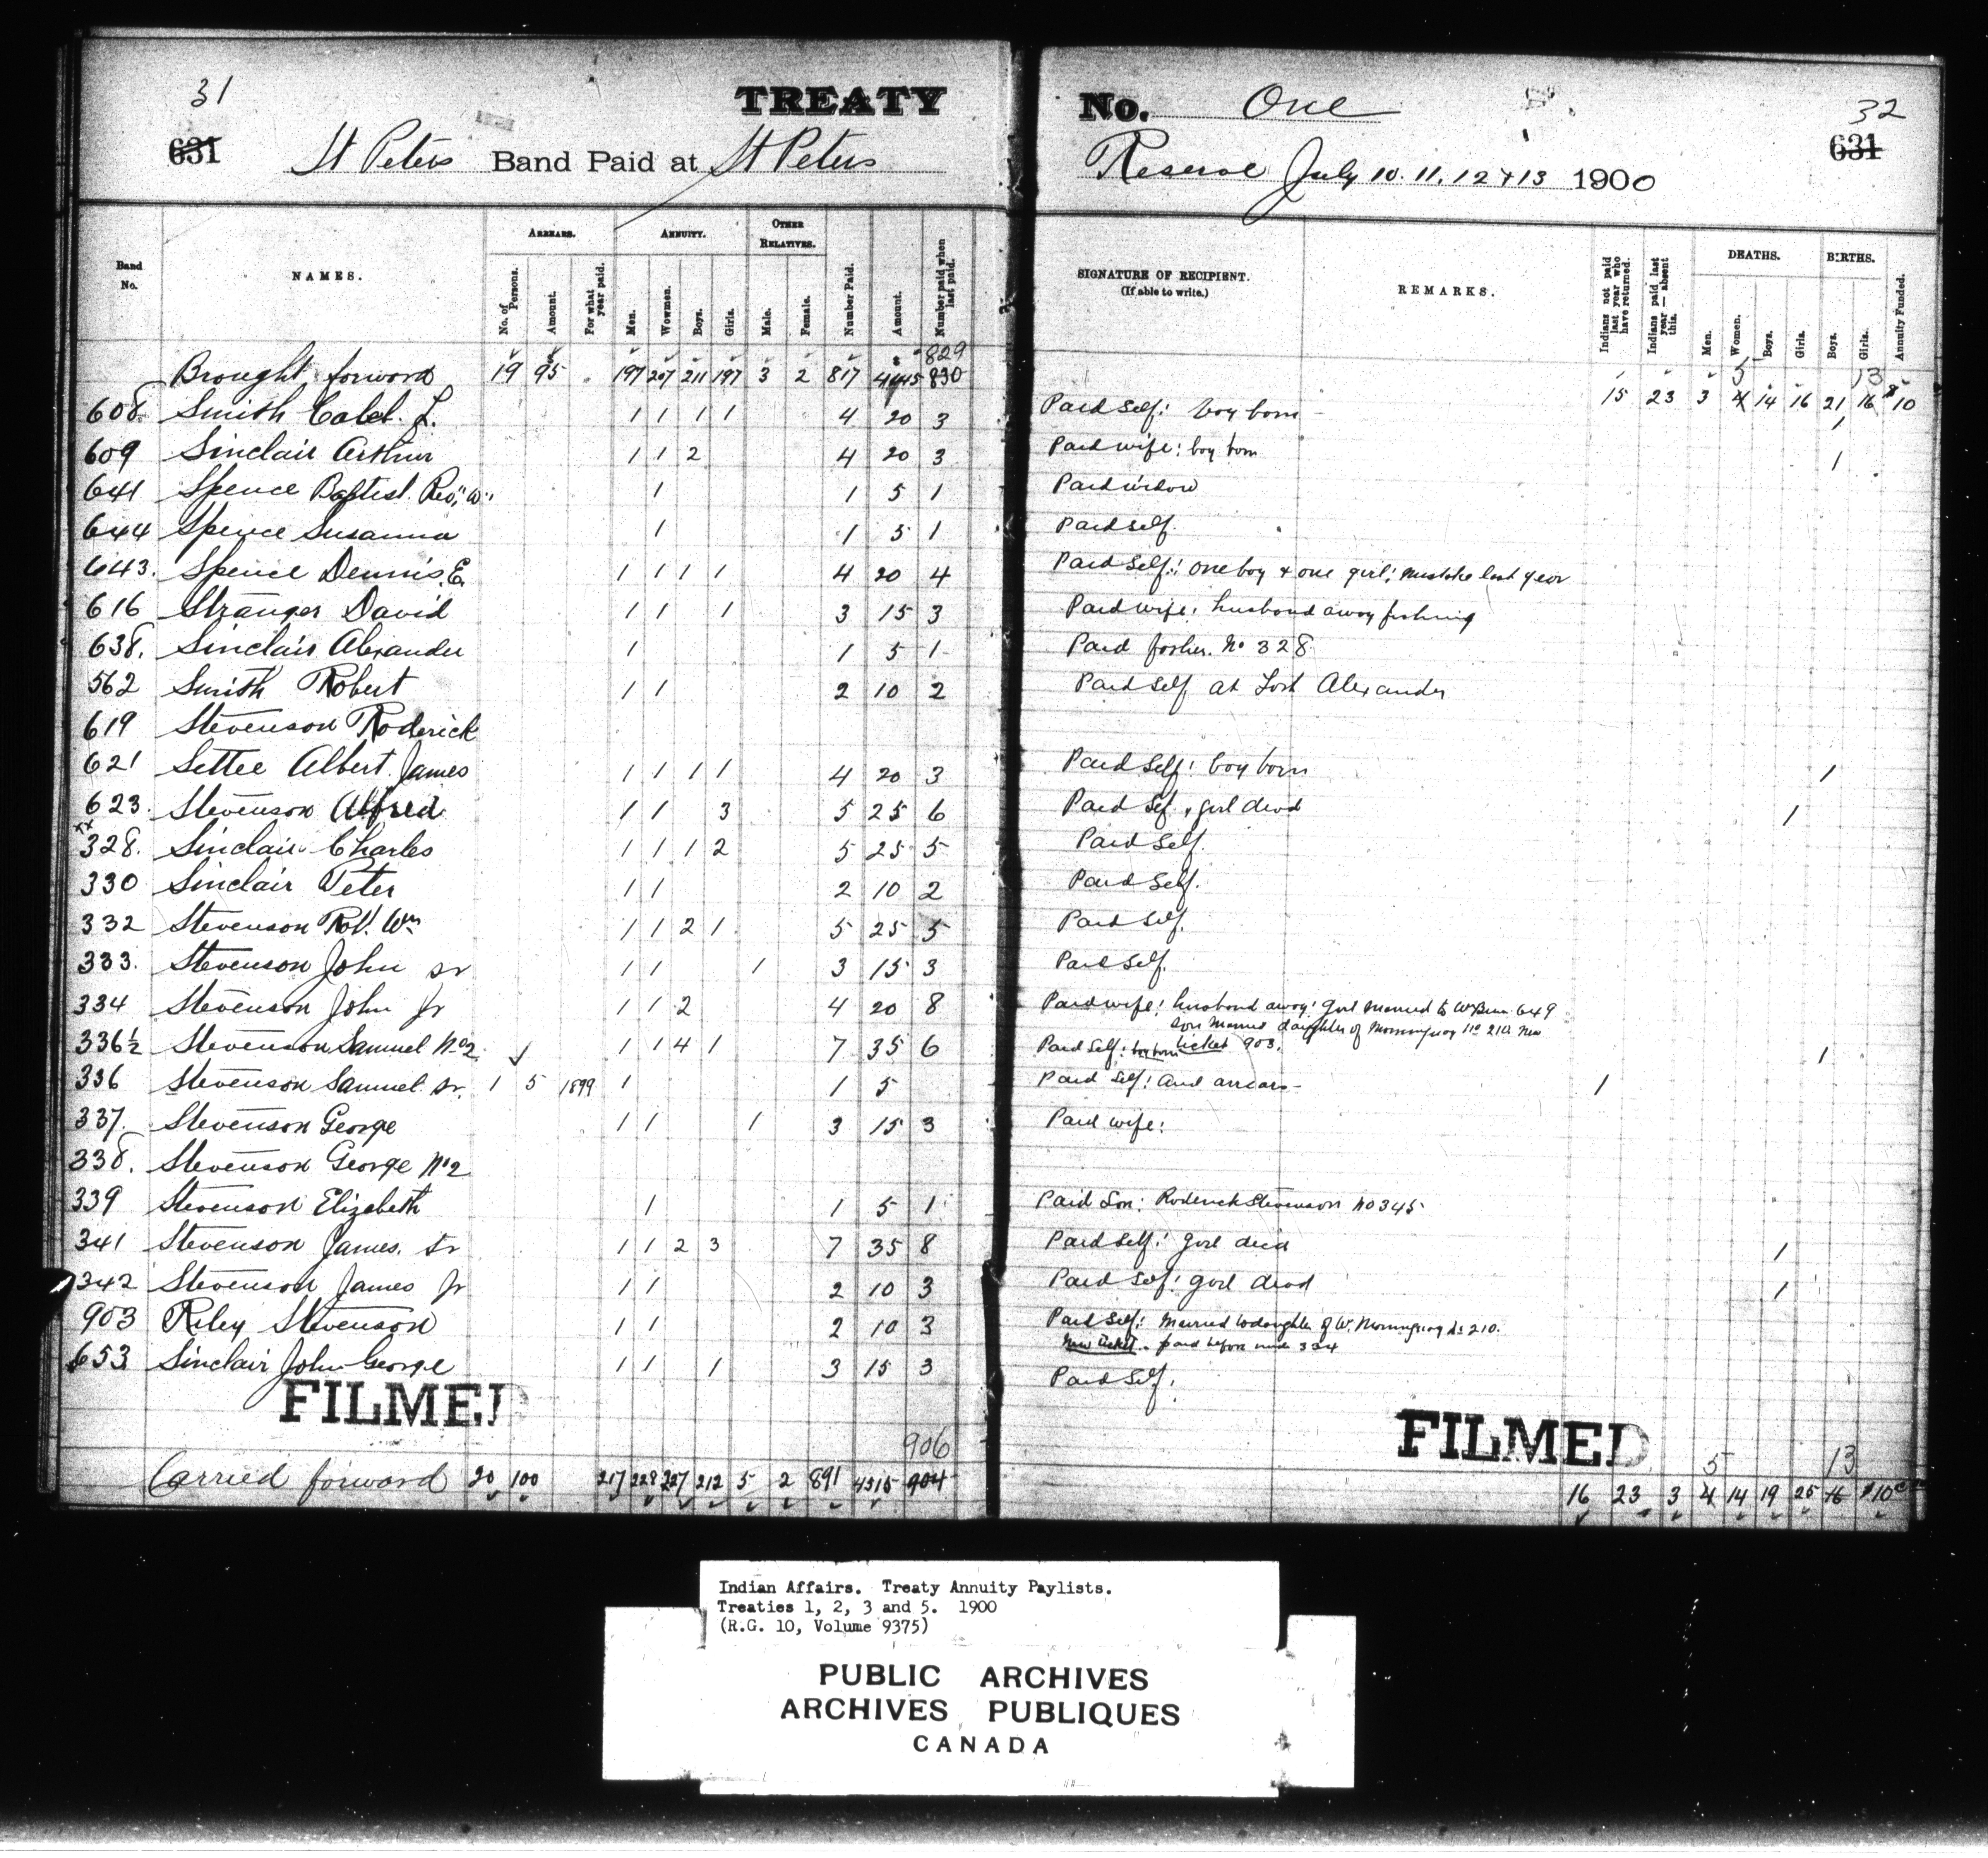 31 TREATY No. One 32
631 St Peters Band Paid at St Peters Reserve July 10. 11. 12 & 13 1900 631
Band No. NAMES. ARREARS. No. of Persons. Amount. For what year paid. ANNUITY. Men. Wowmen. Boys. Girls. OTHER RELATIVES. Male. Female. Number Paid. Amount. Number paid when last paid. SIGNATURE OF RECIPIENT. (If able to write.) REMARKS. Indians not paid last year who have returned. Indians paid last year — absent this. DEATHS. Men. Women. Boys. Girls. BIRTHS. Boys. Girls. Annuity Funded.
829 5 13
Brought forward 19 95 197 207 211 197 3 2 817 4445 830 15 23 3 4 14 16 21 16 $10
608 Smith Calel. L. 1 1 1 1 4 20 3 Paid Self: boy born 1
609 Sinclair Arthur 1 1 2 4 20 3 Paid wife: boy born 1
641 Spence Baptist. Rev. W. 1 1 5 1 Paid widow
644 Spence Susanna 1 1 5 1 Paid Self.
643. Spence Dennis. E. 1 1 1 1 4 20 4 Paid Self: one boy & one girl: mistake last year
616 Stranger David 1 1 1 3 15 3 Paid wife: husband away fishing
638. Sinclair Alexander 1 1 5 1 Paid father. No 328
562 Smith Robert 1 1 2 10 2 Paid Self at Fort Alexander
619 Stevenson Roderick
621 Settee Albert James 1 1 1 1 4 20 3 Paid Self: boy born 1
623. Stevenson Alfred 1 1 3 5 25 6 Paid Self, girl dead 1
328. Sinclair Charles 1 1 1 2 5 25 5 Paid Self.
330 Sinclair Peter 1 1 2 10 2 Paid Self.
332 Stevenson Rob't Wm 1 1 2 1 5 25 5 Paid Self.
333. Stevenson John Sr 1 1 1 3 15 3 Paid Self.
334 Stevenson John Jr 1 1 2 4 20 8 Paid wife: husband away: girl married to Wm 649
son married daughter of Morningway No 210 new
336½ Stevenson Samuel No 2. 1 1 4 1 7 35 6 Paid Self: boy born ticket 903. 1
336 Stevenson Samuel Sr. 1 5 1899 1 1 5 Paid Self: and arrears 1
337. Stevenson George 1 1 1 3 15 3 Paid wife:
338. Stevenson George No 2
339 Stevenson Elizabeth 1 1 5 1 Paid Son: Roderick Stevenson No 345
341 Stevenson James. Sr 1 1 2 3 7 35 8 Paid Self: girl died 1
342 Stevenson James Jr 1 1 2 10 3 Paid Self: girl dead 1
903 Riley Stevenson 1 1 2 10 3 Paid Self: Married to daughter of W. Morningway No 210.
New ticket. paid before under 334
653 Sinclair John George 1 1 1 3 15 3 Paid Self.
FILMED FILMED
906 5 13
Carried forward 20 100 217 228 227 212 5 2 891 4515 904 16 23 3 4 14 19 25 16 $10
Indian Affairs. Treaty Annuity Paylists.
Treaties 1, 2, 3 and 5. 1900
(R.G. 10, Volume 9375)
PUBLIC ARCHIVES
ARCHIVES PUBLIQUES
CANADA